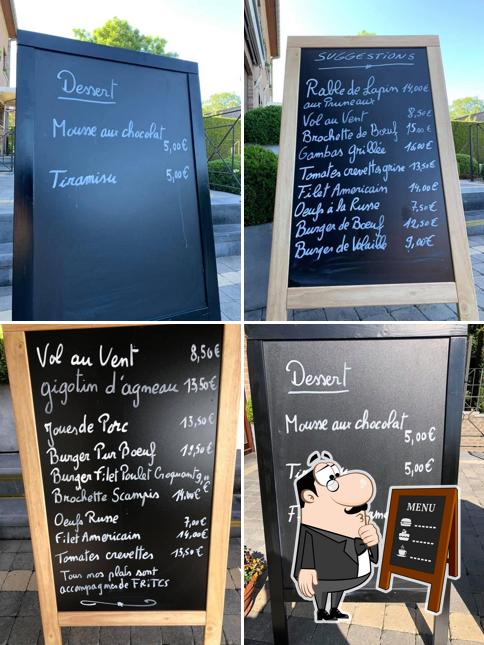 Dessert
Mousse aux chocolat
5,00€
Tiramisu 5,00€
SUGGESTIONS
Rable de Lapin 14,00€
aux Pruneaux
Vol au Vent 8,50€
Brochette de Bœuf 15,00€
Gambas Grillée 16,00€
Tomates crevettes grise 13,50€
Filet Americain 14,00€
Oeufs à la Russe 7,50€
Burger de Boeuf 12,50€
Burger de Volaille 9,00€
Vol au Vent 8,50€
gigotin d'agneau 13,50€
Joues de Porc 13,50€
Burger Pur Bœuf 12,50€
Burger Filet Poulet Croquant 9,00€
Brochette Scampis 14,00€
Oeufs Russe 7,00€
Filet Américain 14,00€
Tomates crevettes 13,50€
Tous nos plats sont
accompagnés de FRITES
Dessert
Mousse aux chocolat
5,00€
5,00€
MENU